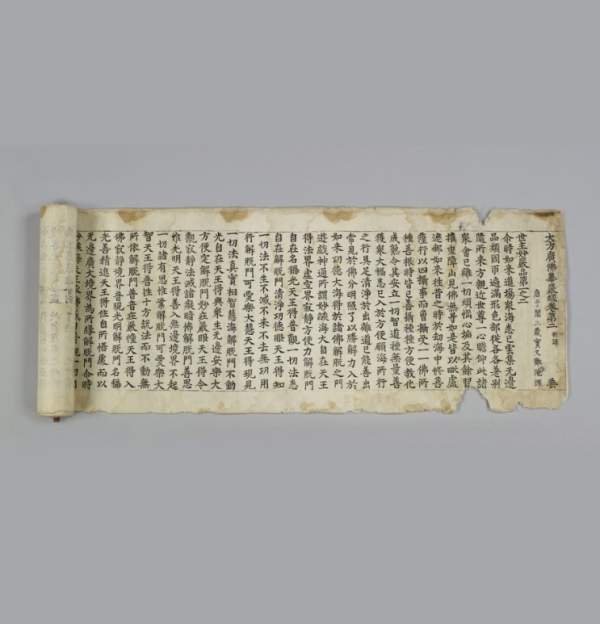 大方廣佛華嚴經卷第二
世主妙嚴品第一之二
尒時如來道場衆海悉已雲集無邊
品類周帀遍滿形色部從各各差別
隨所來方親近世尊一心瞻仰此諸
衆會已離一切煩惱心垢及其餘習
摧重障山見佛無礙如是皆以毗盧
遮那如來往昔之時於劫海中修菩
薩行以四攝事而曾攝受一一佛所
種善根時皆已善攝種種方便教化
成熟令其安立一切智道種無量善
獲衆大福悉已入於方便願海所行
之行具足清淨於出離道已能善出
常見於佛分明照了以勝解力入於
如來功德大海得於諸佛解脫之門
遊戲神通所謂妙焰海大自在天王
得法界虛空界寂靜方便力解脫門
自在名稱光天王得普觀一切法悉
自在解脫門清淨功德眼天王得知
一切法不生不滅不來不去無功用
行解脫門可愛樂大慧天王得現見
一切法真實相智慧海解脫門不動
光自在天王得與衆生無邊安樂大
方便定解脫門妙莊嚴眼天王得令
觀寂靜法滅諸癡暗怖解脫門善思
惟光明天王得善入無邊境界不起
一切諸有思惟業解脫門可愛樂大
智天王得普往十方說法而不動無
所依解脫門普音莊嚴幢天王得入
佛寂靜境界普現光明解脫門名稱
光善精進天王得住自所悟處而以
無邊廣大境界爲所緣解脫門尒時